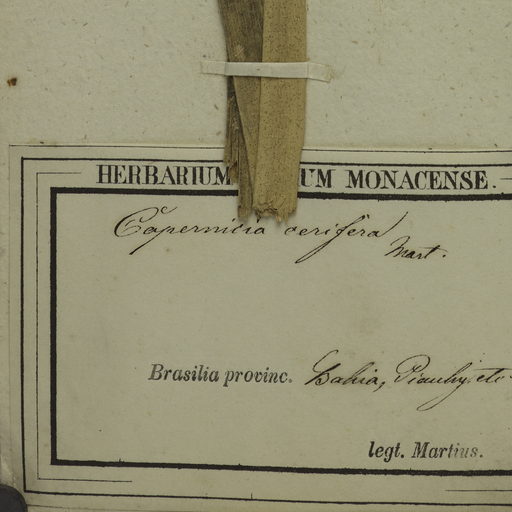 HERBARIUM UM MONACENSE.
Copernicia cerifera
Mart.
Brasilia provinc. Bahia, Piauhy, etc
legt. Martius.